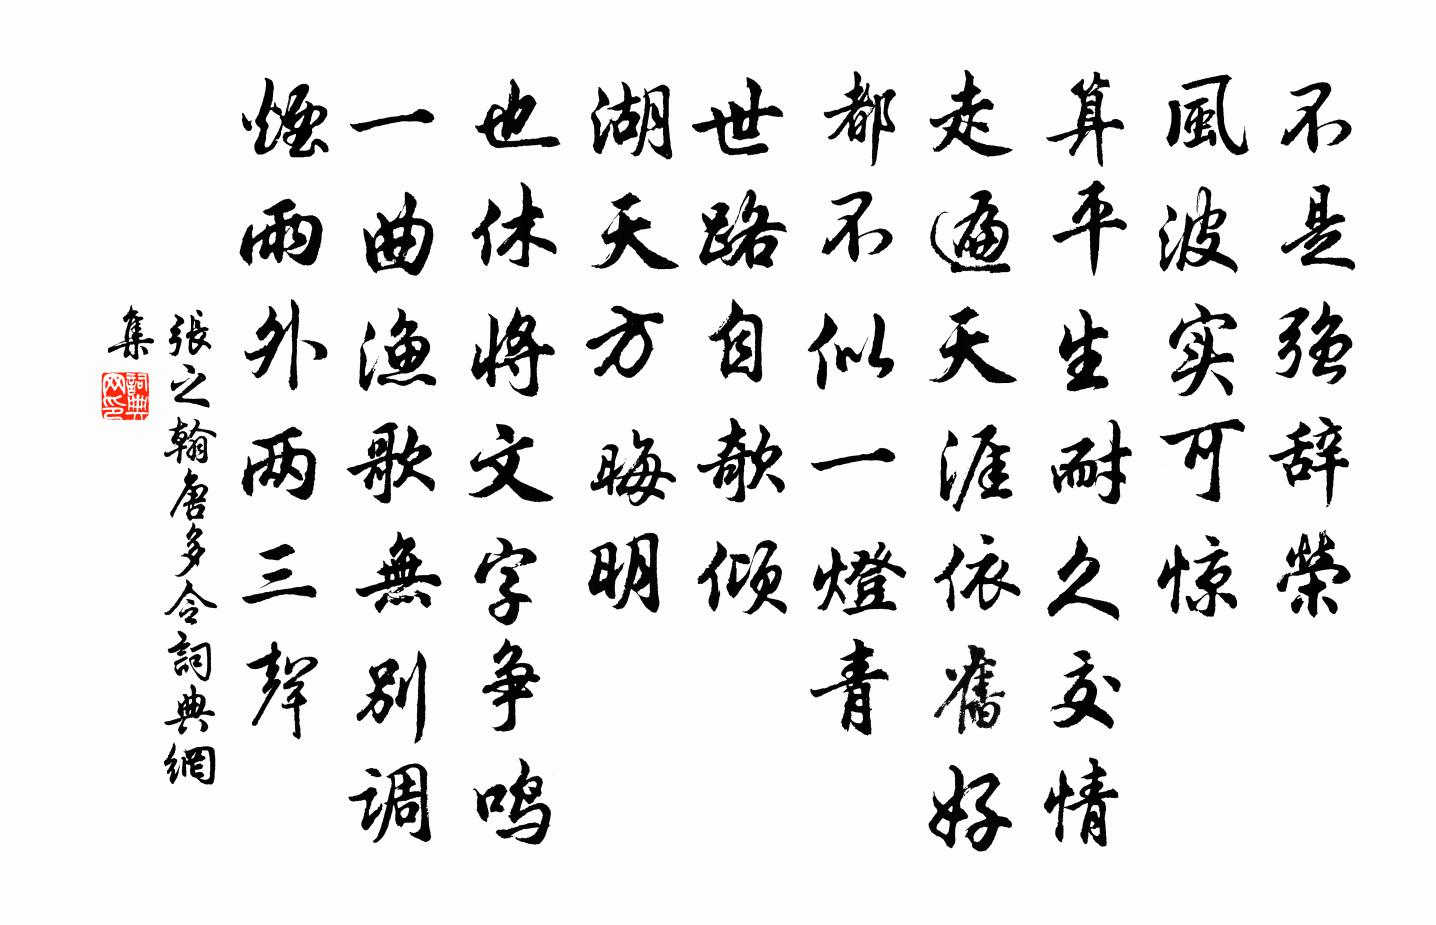 不是强辞榮
風波实可惊
算平生耐久交情
走遍天涯依舊好
都不似一燈青
世路自欹倾
湖天方晦明
也休将文字争鸣
一曲渔歌無别调
煙雨外两三聲
張之翰唐多令詞典網
集
詞典网印